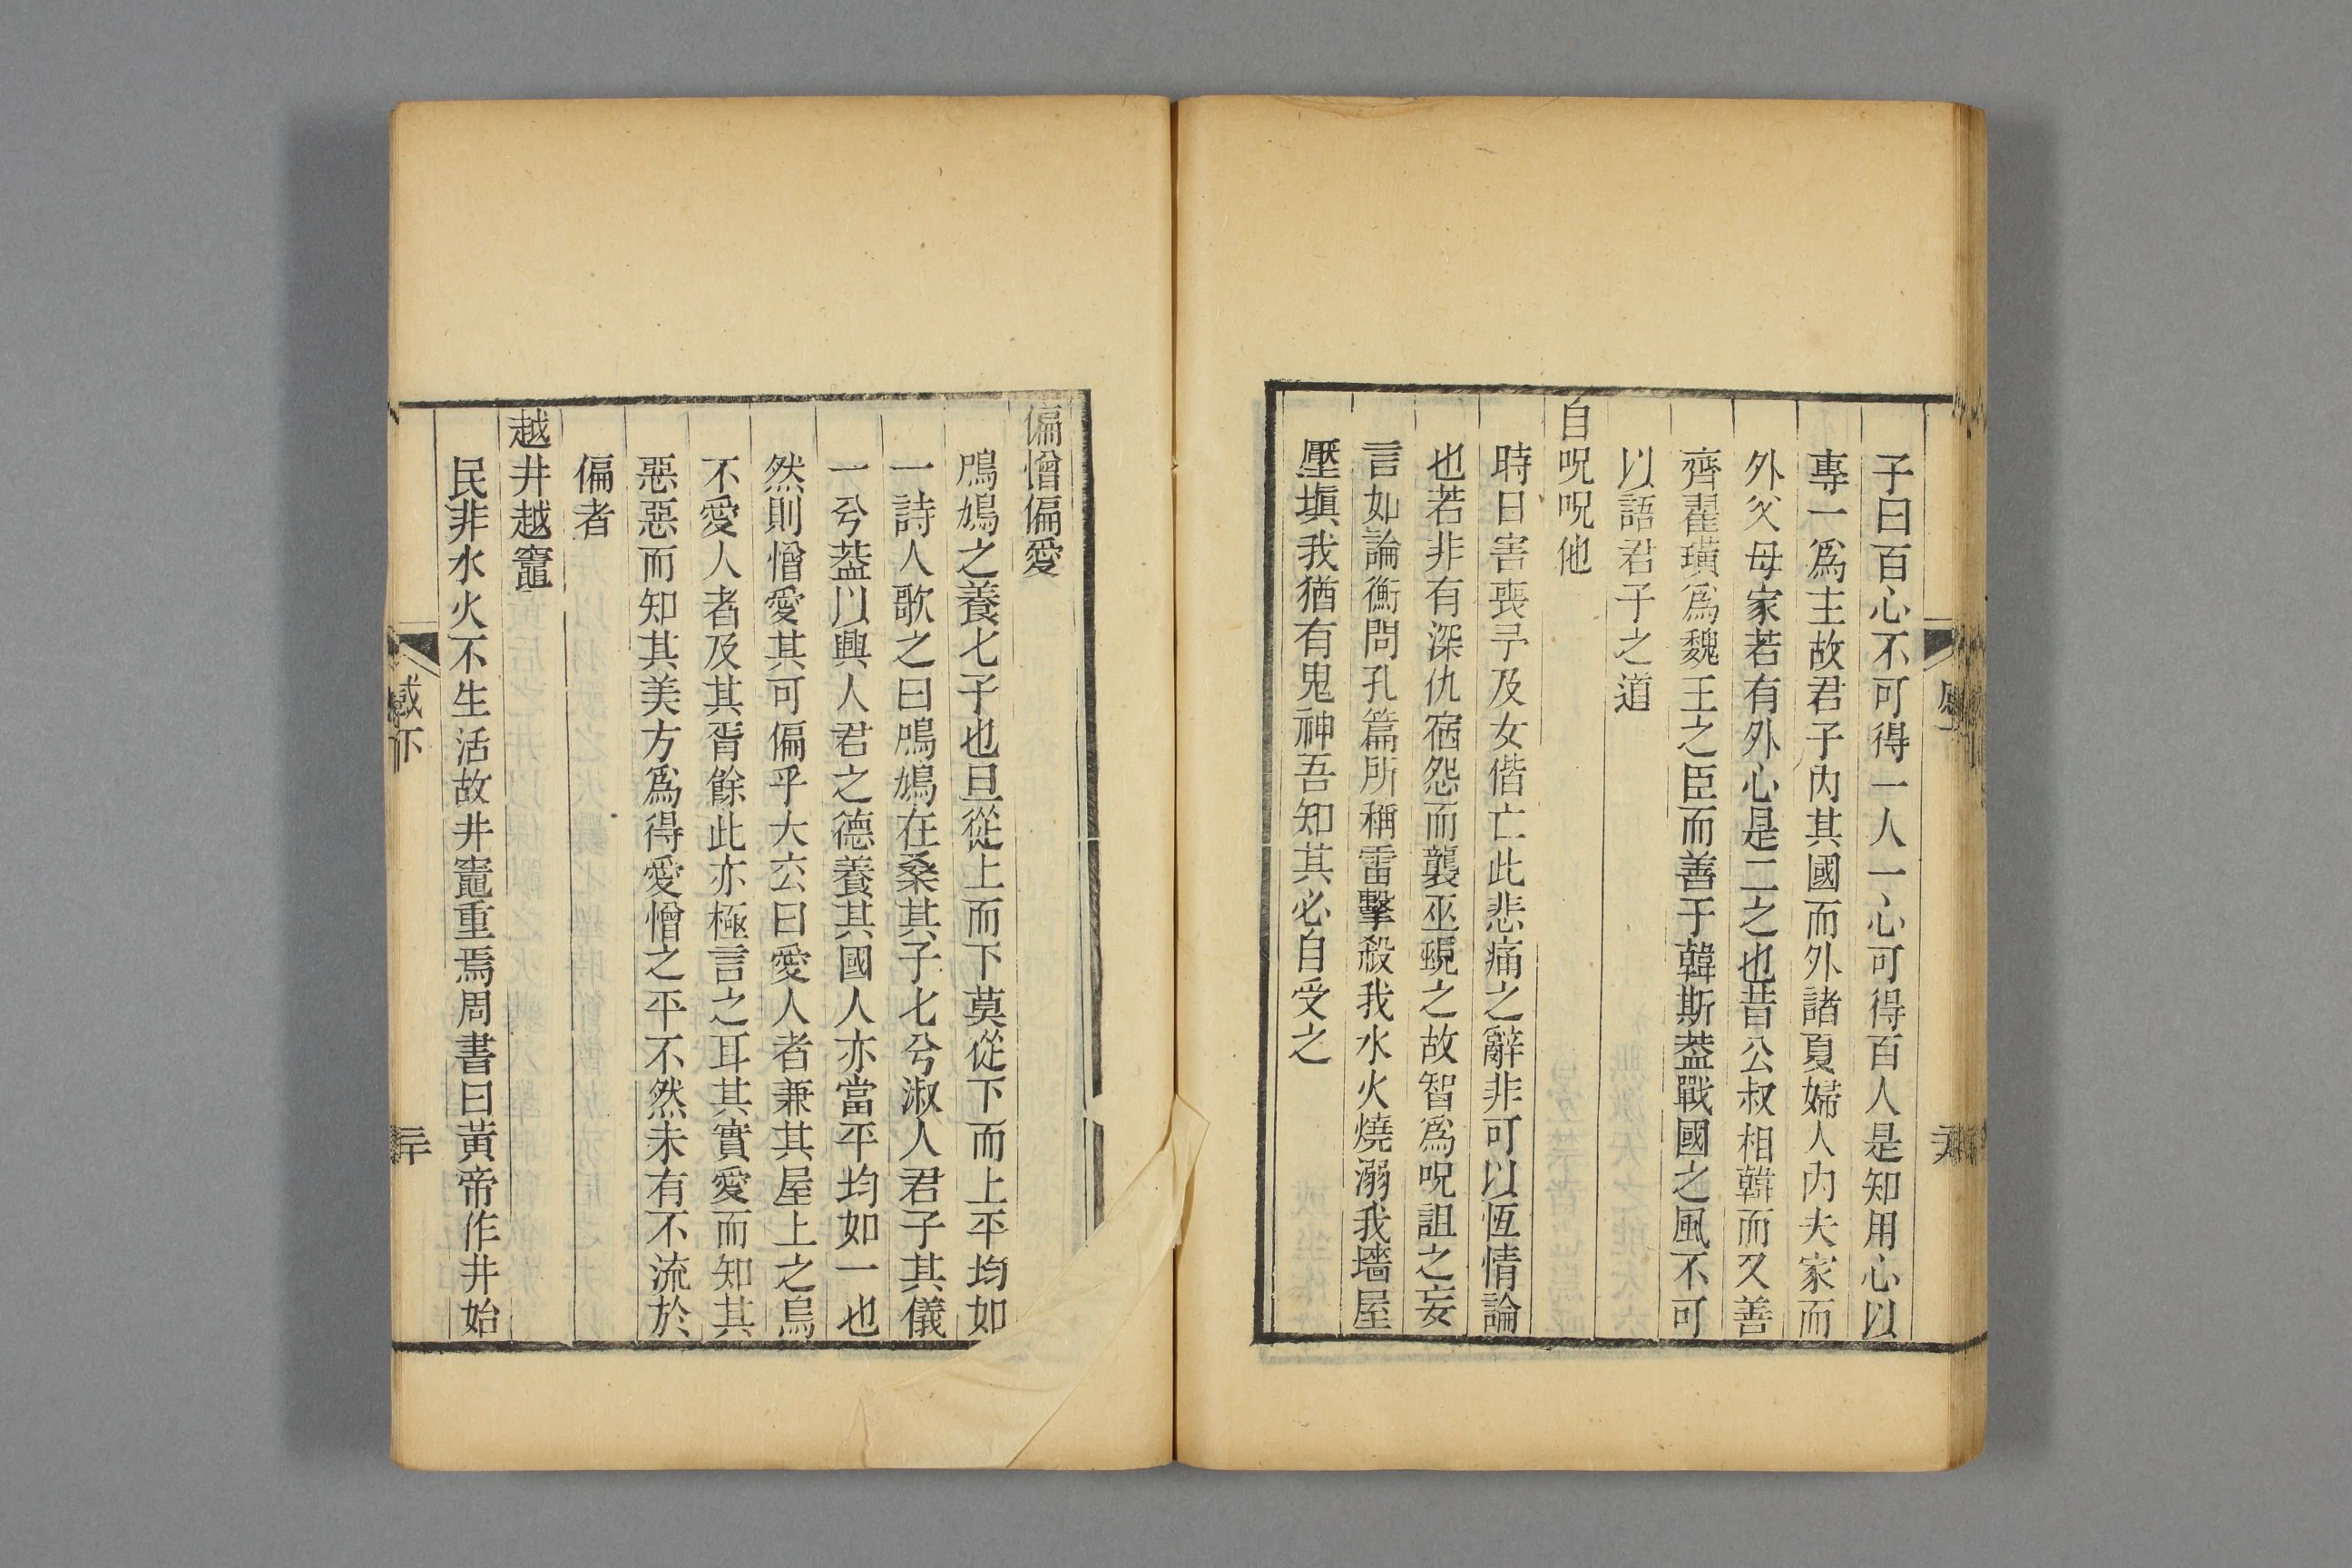 子曰百心不可得一人一心可得百人是知用心以
專一爲主故君子內其國而外諸夏婦人內夫家而
外父母家若有外心是二之也昔公叔相韓而又善
齊翟璜爲魏王之臣而善于韓斯葢戰國之風不可
以語君子之道
自呪呪他
時日害喪予及女偕亡此悲痛之辭非可以恆情論
也若非有深仇宿怨而襲巫覡之故智爲呪詛之妄
言如論衡問孔篇所稱雷擊殺我水火燒溺我墻屋
壓塡我猶有鬼神吾知其必自受之
偏憎偏愛
鳲鳩之養七子也旦從上而下莫從下而上平均如
一詩人歌之曰鳲鳩在桑其子七兮淑人君子其儀
一兮葢以興人君之德養其國人亦當平均如一也
然則憎愛其可偏乎大公曰愛人者兼其屋上之烏
不愛人者及其胥餘此亦極言之耳其實愛而知其
惡惡而知其美方爲得愛憎之平不然未有不流於
偏者
越井越竈
民非水火不生活故井竈重焉周書曰黃帝作井始
感下